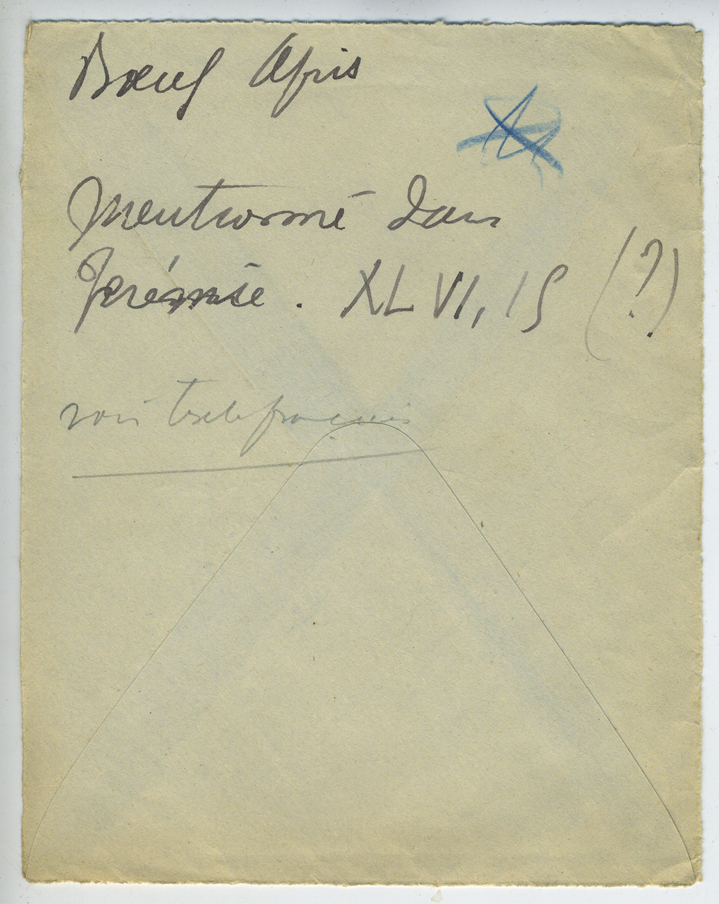 Bœuf Apis
Mentionné dans
Jérémie. XLVI, 15 (?)
voir texte français